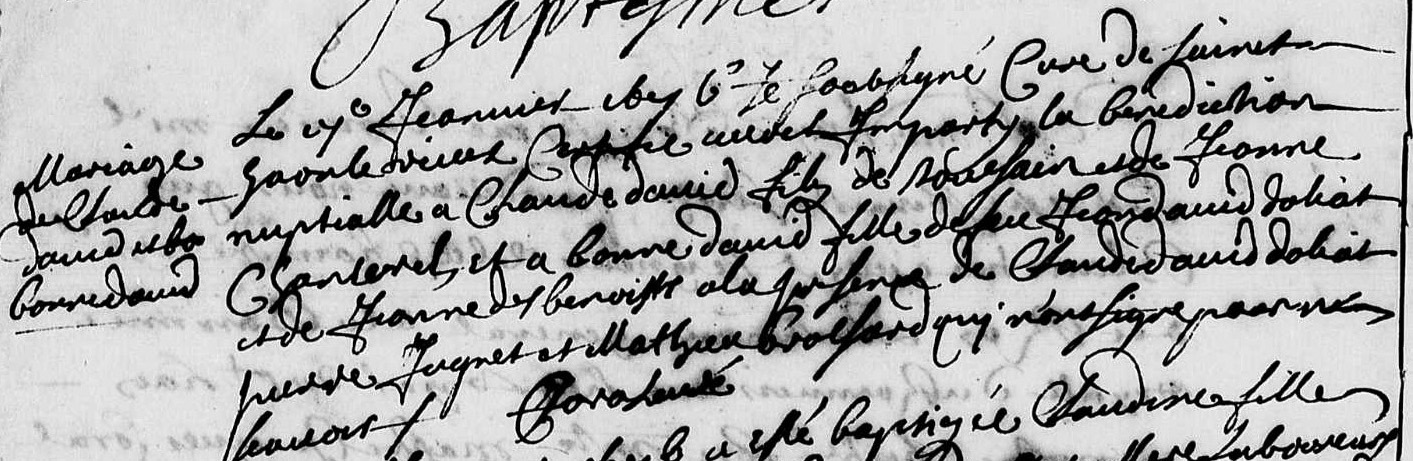 Baptesmes
Mariage
de Claude
david et bo
bonne david
Le Jeanvier Je soubsigné Cure de sainct
Certifie avoir Imparty la benediction
nuptialle a Claude david fils de toussain et de Jeanne
Chanterel, et a bonne david fille de feu Jean david doliat
et de Jeanne des benoists a la presence de Claude david doliat
pierre Jugnet et Mathieu brossard qui n'ont signe pour ne
scavoir
a esté baptizée Claudine fille
laboureur